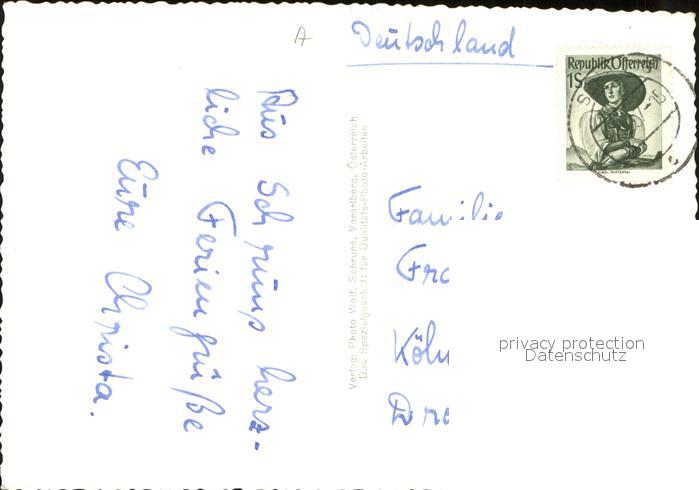 A
Deutschland
Republik Österreich
1S
Aus Schruns herz-
liche Feriengrüße
Eure Christa.
Verlag: Photo Wolf, Schruns, Vorarlberg, Österreich
Das Spezialgeschäft für Qualitäts-Photo-Arbeiten
Familie
Köln
privacy protection
Datenschutz